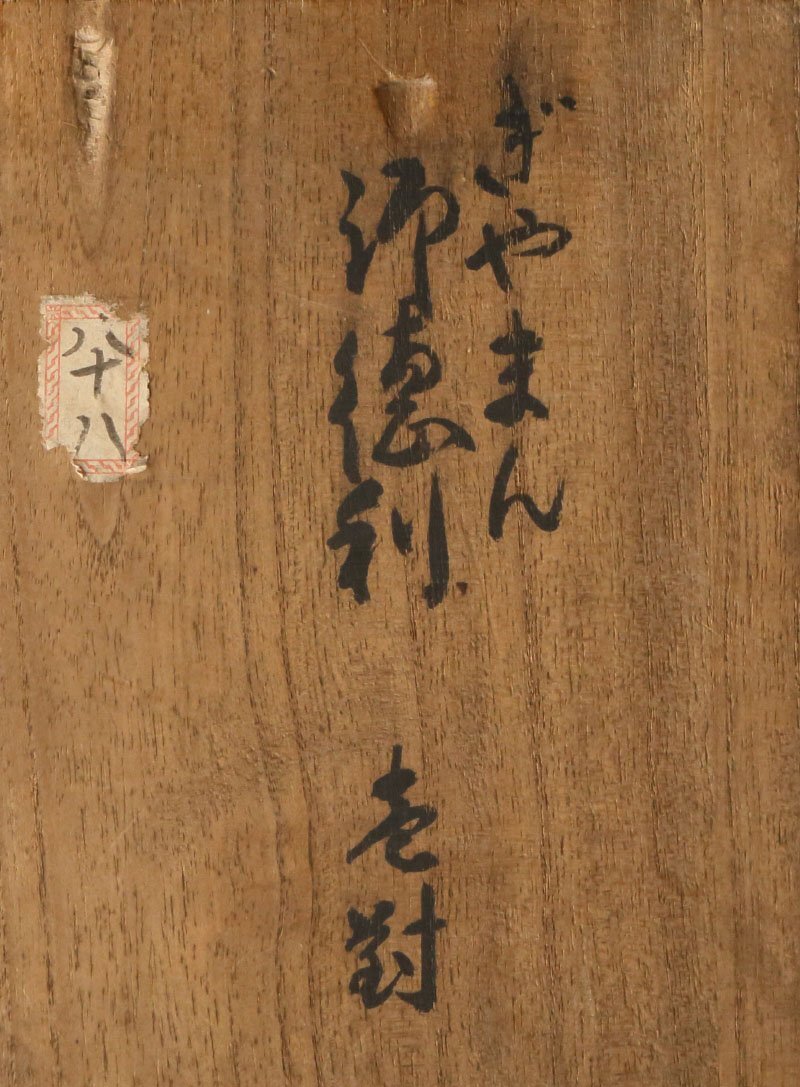 ぎやまん
御徳利 壱對
八十八